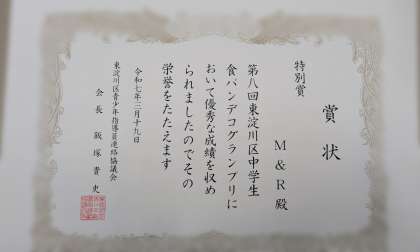 賞状
特別賞
M&R殿
第八回東淀川区中学生
食パンデコグランプリに
おいて優秀な成績を収め
られましたのでその
栄誉をたたえます
令和七年三月十九日
東淀川区青少年指導員連絡協議会
会長 飯塚貴史